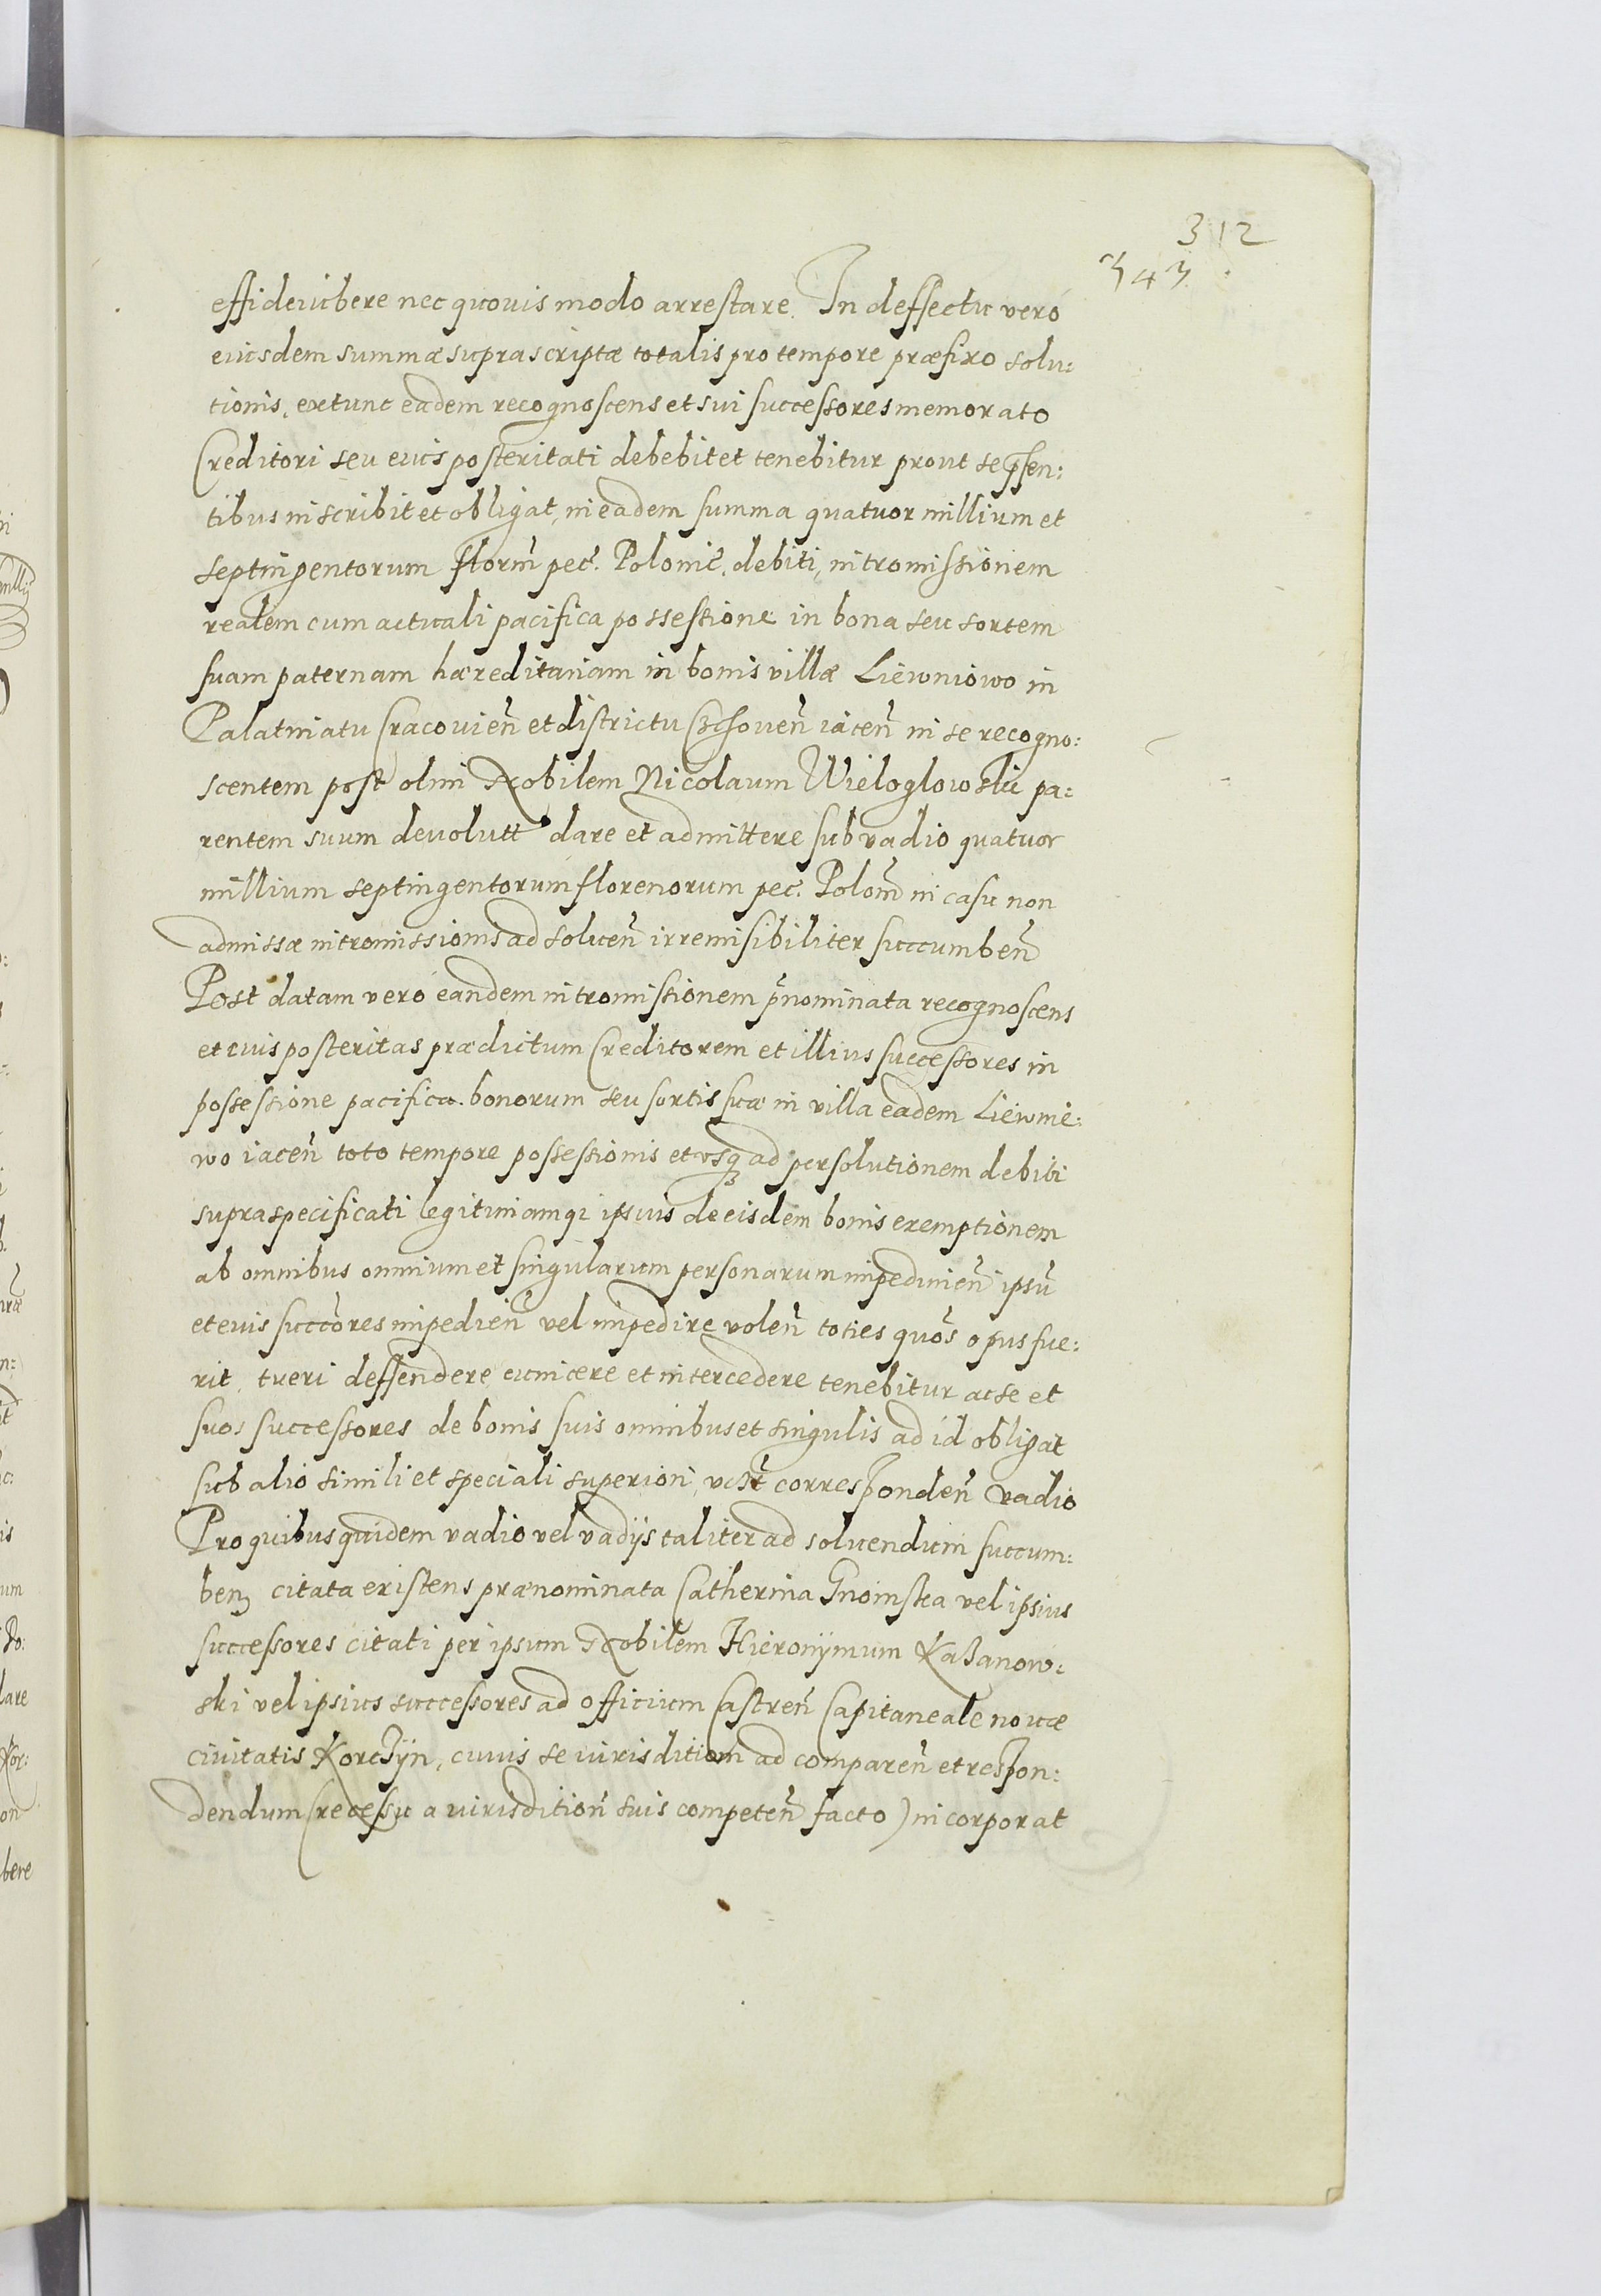 312
343
effideiubere nec quouis modo arrestare. In deffectu vero
eiusdem summæ suprascriptæ totalis pro tempore præfixo solu:
tionis, extunc eadem recognoscens et sui successores memorato
Creditori seu eius posteritati debebit et tenebitur prout se p̃sen:
tibus inscribit et obligat, in eadem summa quatuor millium et
septingentorum floreñ pec̃. Polonic̃. debiti, intromissionem
realem cum actuali pacifica possessione in bona seu sortem
suam paternam hæreditariam in bonis villæ Liewniowo in
Palatinatu Cracovieñ et districtu Czchoveñ iaceñ in se recogno:
scentem post olim Nobilem Nicolaum Wieloglowski pa:
rentem suum devolutt dare et admittere sub vadio quatuor
millium septingentorum florenorum pec̃. Poloñ in casu non
admissæ intromissionis ad solueñ irremisibiliter succumbeñ
Post datam vero eandem intromissionem p̃nominata recognoscens
et eius posteritas prædictum Creditorem et illius successores in
possessione pacifica bonorum seu sortis suæ in villa eadem Liewnie:
wo iaceñ toto tempore possessionis et usq3 ad persolutionem debiti
supraspecificati legitimamq3 ipsius de eisdem bonis exemptionem
ab omnibus omnium et singularum personarum impedimeñ ipsũ
et eius succ̃ores impedieñ vel impedire voleñ toties quõs opus fue:
rit, tueri deffendere evincere et intercedere tenebitur ac se et
suos successores de bonis suis omnibus et singulis ad id obligat
sub alio simili et speciali superiori, correspondeñ vadio
Pro quibus quidem vadio vel vadijs taliter ad soluendum succum:
ben3 citata existens prænominata Catherina Gnoinska vel ipsius
successores citati per ipsum Nobilem Hieronÿmum Kazanow:
ski vel ipsius successores ad officium Castreñ Capitaneale nouæ
ciuitatis Korczÿn, cuius se iurisditioni ad compareñ et respon:
dendum (recessu a iurisditioñ suis competeñ facto) incorporat